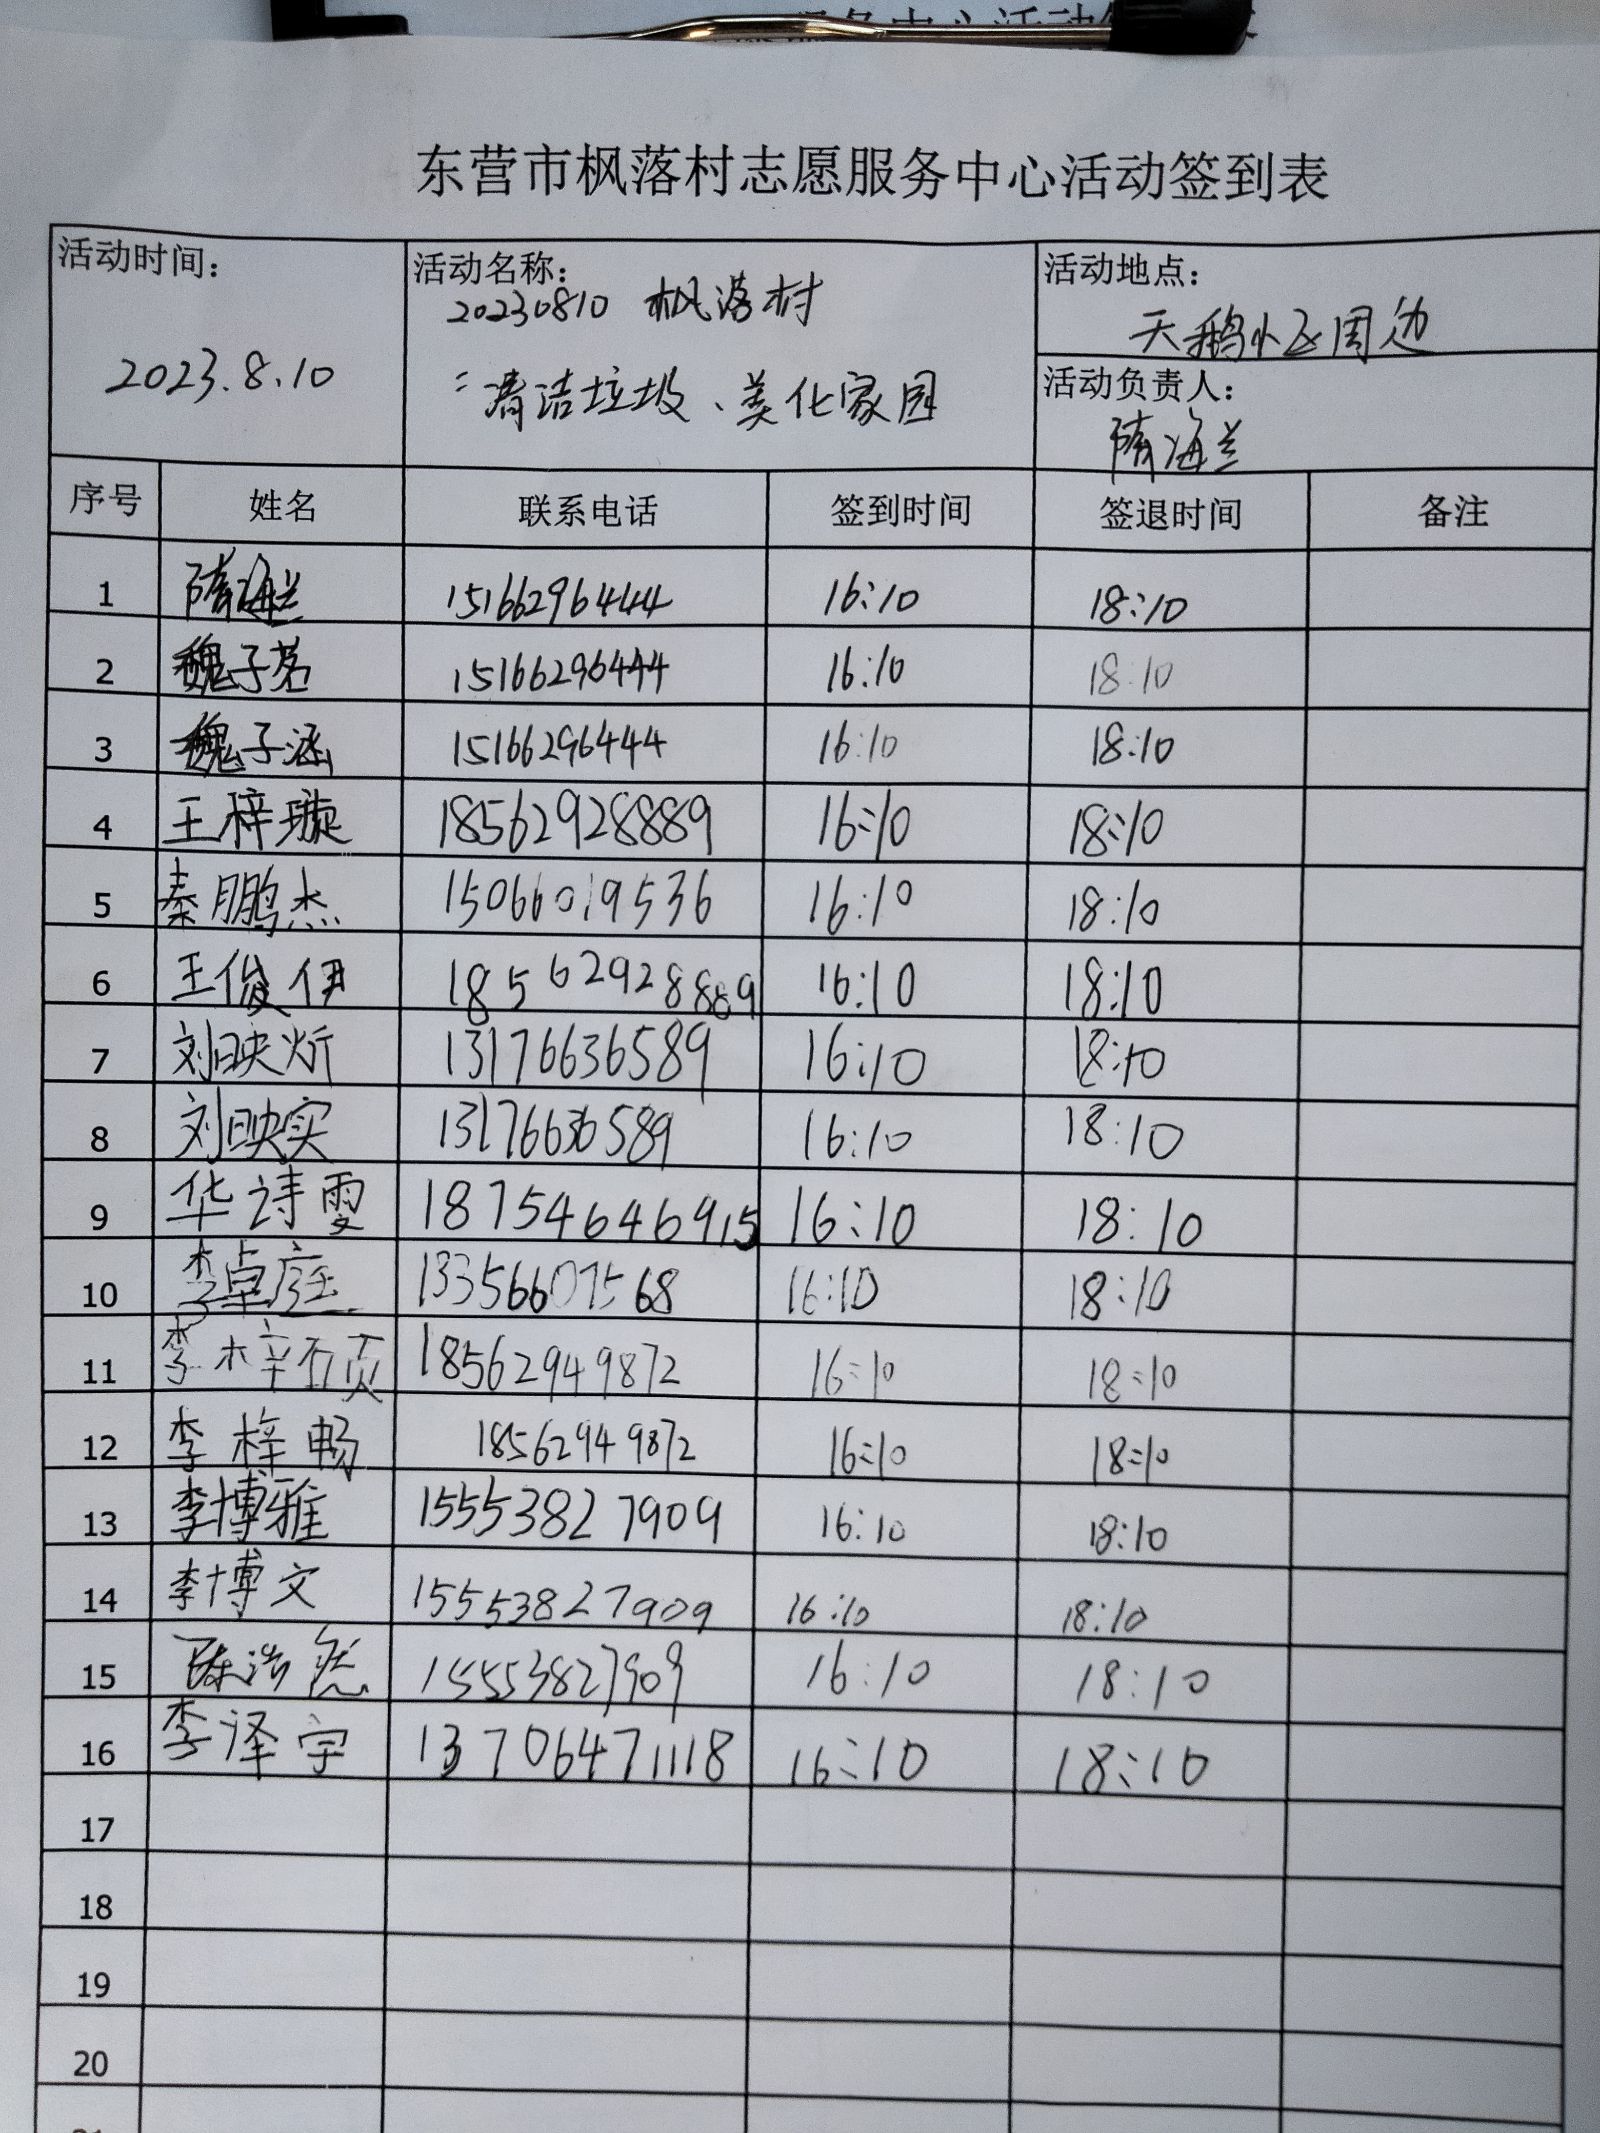 东营市枫落村志愿服务中心活动签到表
活动时间：
2023.8.10
活动名称：
20230810 枫落村
清洁垃圾、美化家园
活动地点：
天鹅小区周边
活动负责人：
隋海兰
序号 姓名 联系电话 签到时间 签退时间 备注
1 隋海兰 15166296444 16:10 18:10
2 魏子茗 15166296444 16:10 18:10
3 魏子涵 15166296444 16:10 18:10
4 王梓璇 18562928889 16:10 18:10
5 秦鹏杰 15066019536 16:10 18:10
6 王俊伊 18562928889 16:10 18:10
7 刘映炘 13176636589 16:10 18:10
8 刘映实 13176636589 16:10 18:10
9 华诗雯 18754646915 16:10 18:10
10 李卓庭 13356607568 16:10 18:10
11 李梓硕 18562949872 16:10 18:10
12 李梓畅 18562949872 16:10 18:10
13 李博雅 15553827909 16:10 18:10
14 李博文 15553827909 16:10 18:10
15 陈浩然 15553827909 16:10 18:10
16 李泽宇 13706471118 16:10 18:10
17
18
19
20